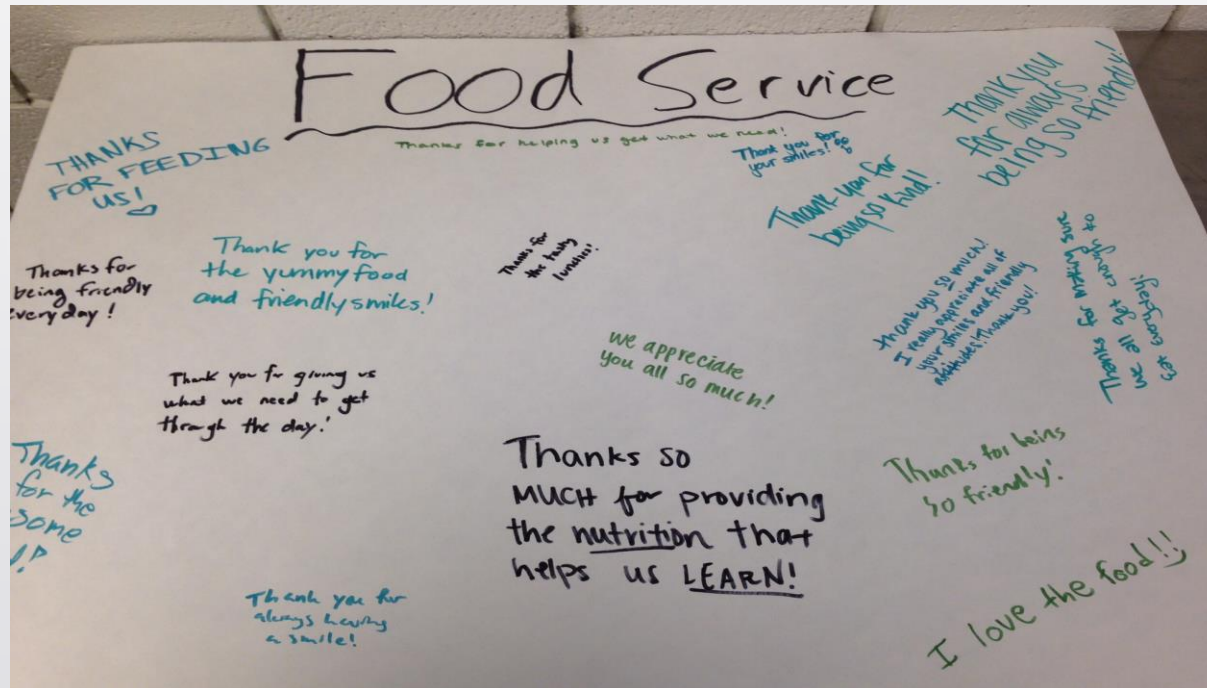 Food Service
Thanks for helping us get what we need!
THANKS
FOR FEEDING
US!
Thank you for
your smiles!
Thank you
for always
being so friendly!
Thank you for
being so kind!
Thanks for
being friendly
everyday!
Thank you for
the yummy food
and friendly smiles!
Thanks for
the tasty
lunches!
thank you so much!
I really appreciate all of
your smiles and friendly
attitudes! Thank you!
Thanks for making sure
we all got enough to
eat everyday!
we appreciate
you all so much!
Thank you for giving us
what we need to get
through the day!
Thanks
for the
some
Thanks so
MUCH for providing
the nutrition that
helps us LEARN!
Thanks for being
so friendly!
Thank you for
always having
a smile!
I love the food!!